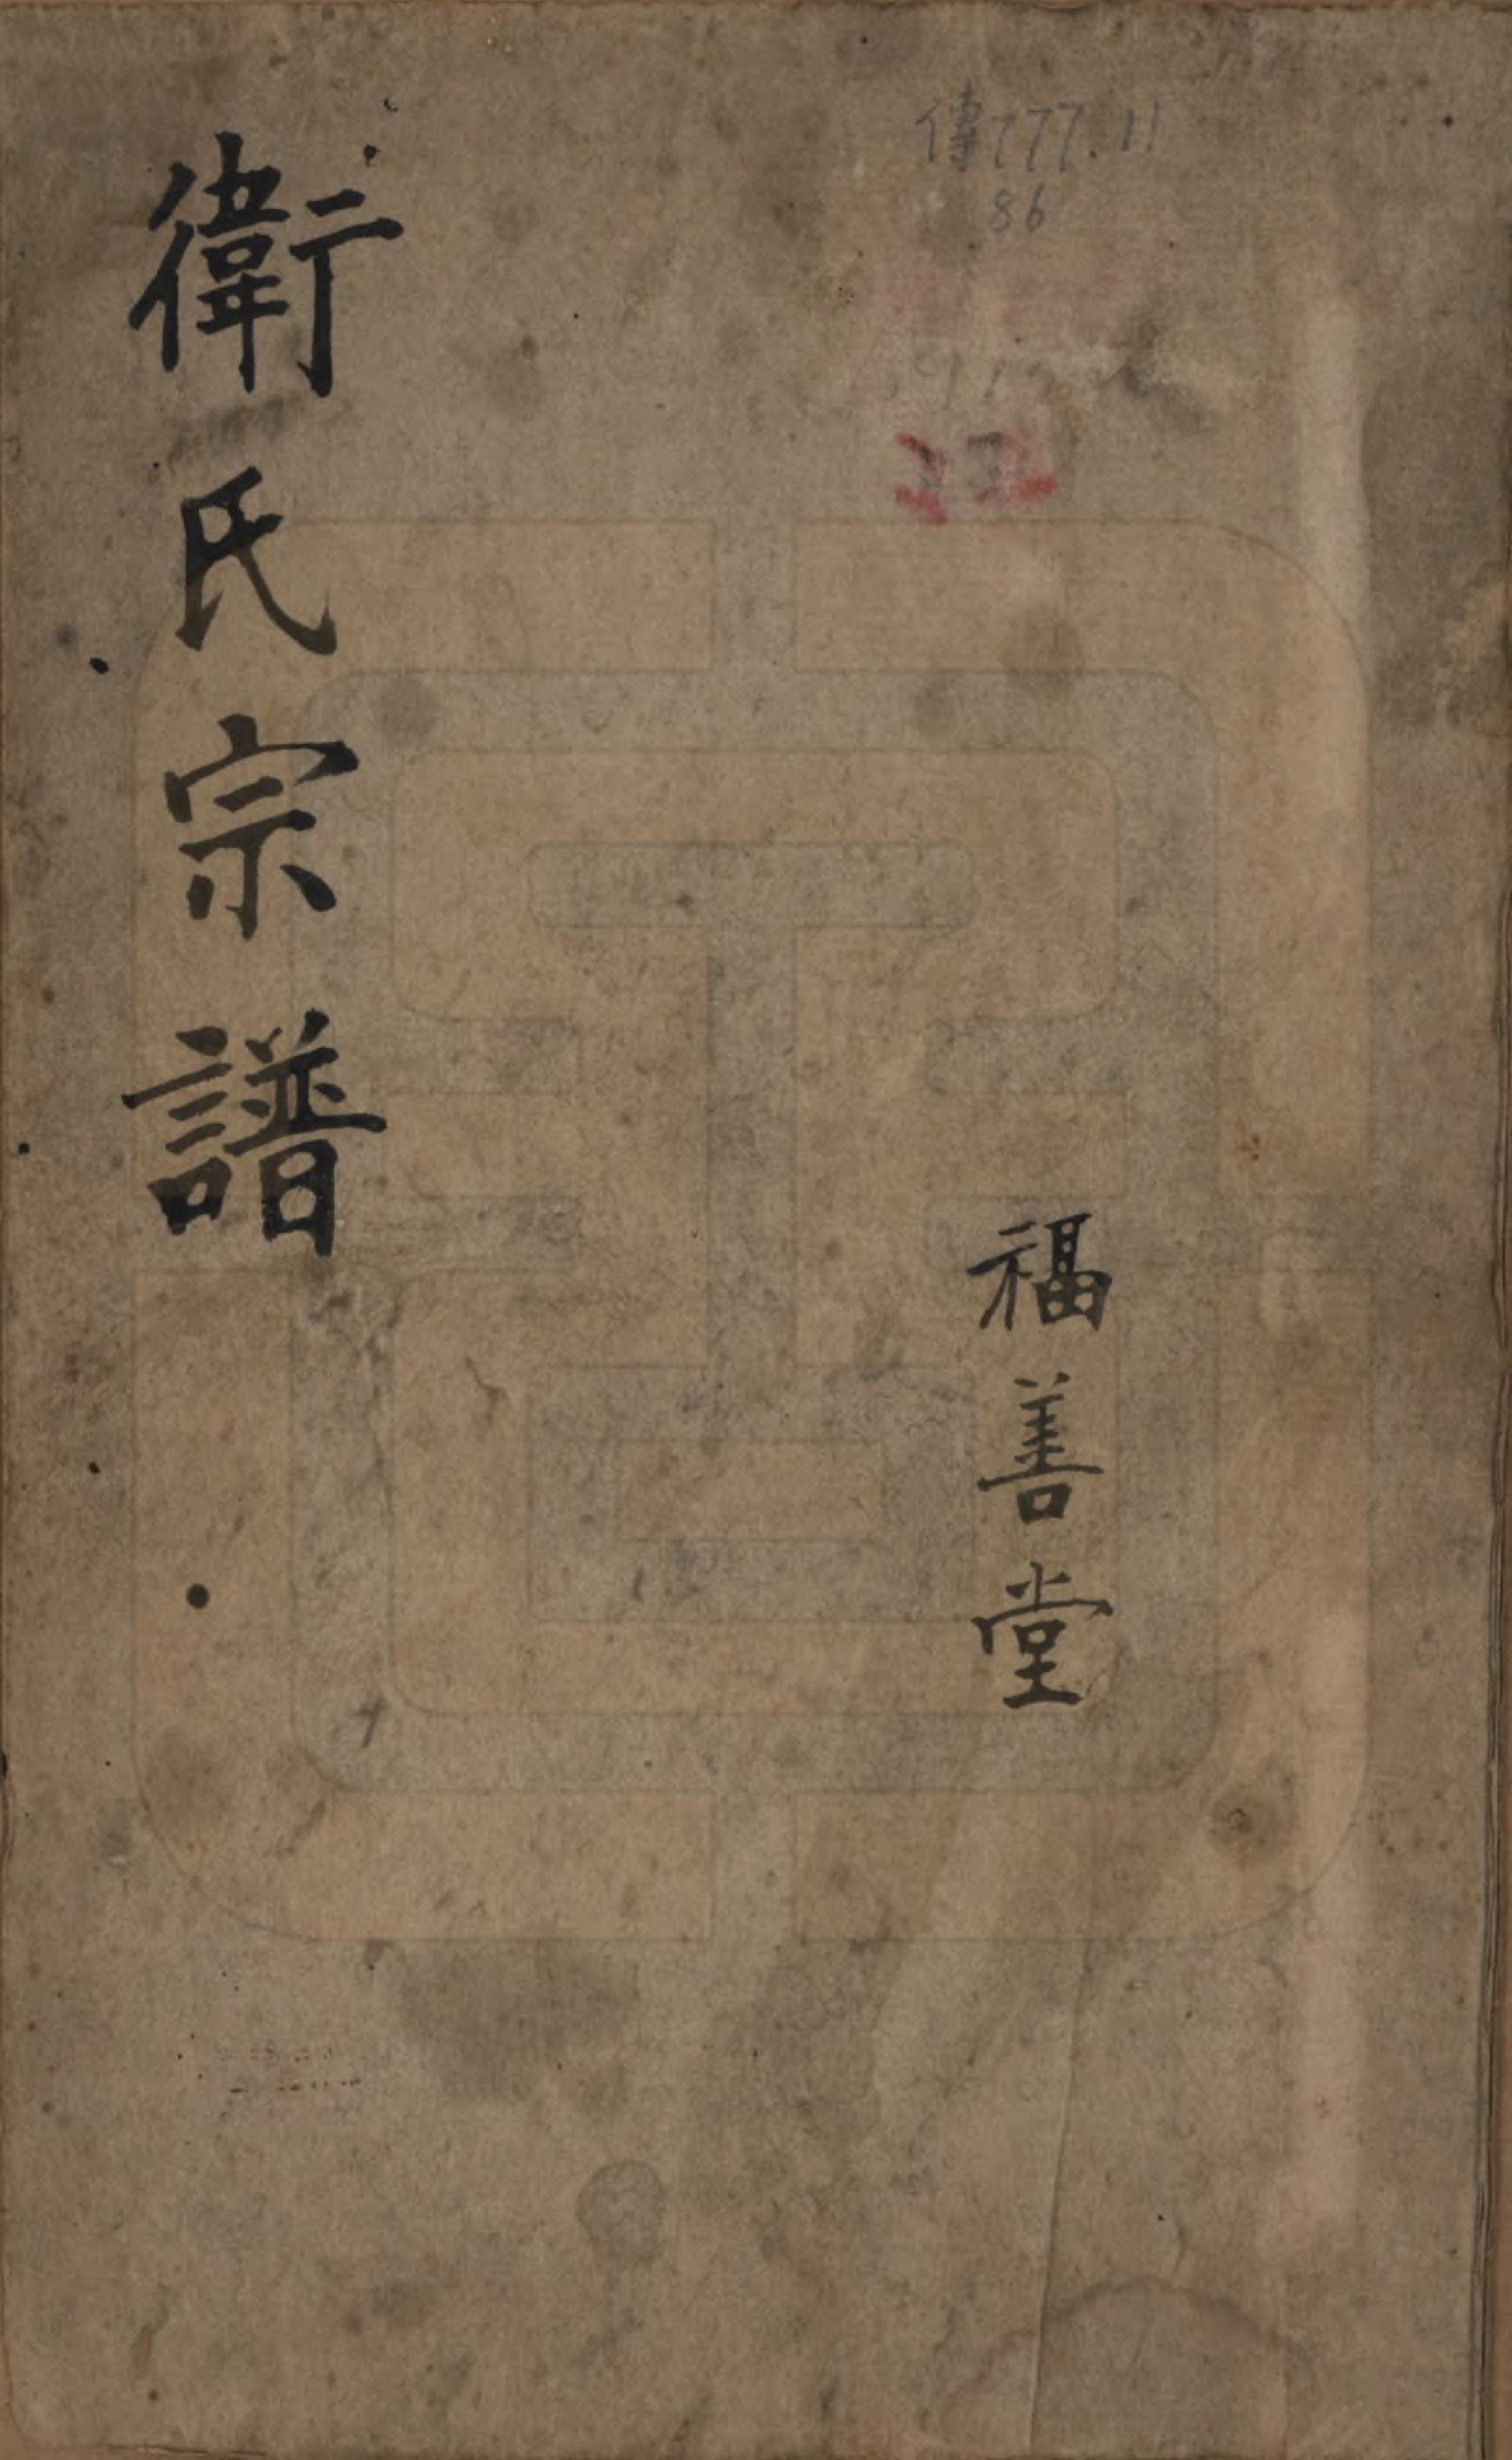 傳777.11
86
福善堂
衛氏宗譜